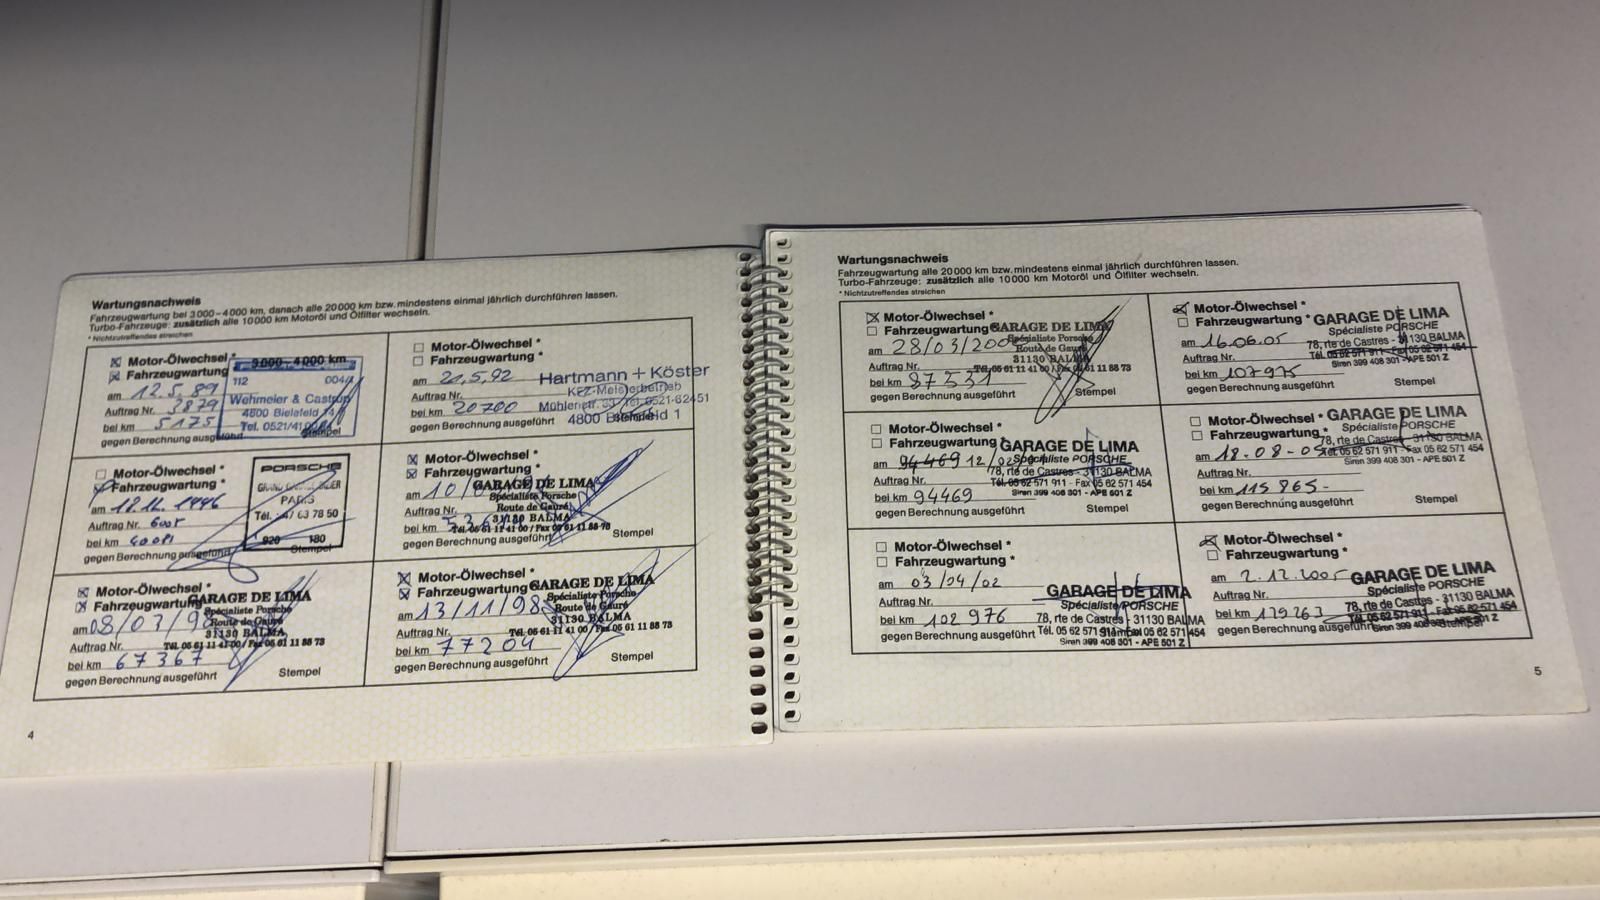 Wartungsnachweis
Fahrzeugwartung bei 3 000–4 000 km, danach alle 20 000 km bzw. mindestens einmal jährlich durchführen lassen.
Turbo-Fahrzeuge: zusätzlich alle 10 000 km Motoröl und Ölfilter wechseln.
* Nichtzutreffendes streichen
Motor-Ölwechsel *
Fahrzeugwartung
am 12.5.89
Auftrag Nr. 3879
bei km 5175
gegen Berechnung ausgeführt
3 000–4 000 km
112 004/
Wehmeier & Castrup
4800 Bielefeld 14
Tel. 0521/41
Stempel
Motor-Ölwechsel *
Fahrzeugwartung *
am 21.5.92
Auftrag Nr.
bei km 20700
gegen Berechnung ausgeführt
Hartmann + Köster
KFZ-Meisterbetrieb
Mühlenstr. 33 Tel. 0521-62451
4800 Bielefeld 1
Motor-Ölwechsel *
Fahrzeugwartung *
am
Auftrag Nr.
bei km
gegen Berechnung ausgeführt
PORSCHE
PARIS
Tél. 47 63 78 50
920 180
Stempel
Motor-Ölwechsel *
Fahrzeugwartung *
am 10/
Auftrag Nr.
bei km
gegen Berechnung ausgeführt
GARAGE DE LIMA
Spécialiste Porsche
Route de Gauré
31130 BALMA
Tél. 05 61 11 41 00 / Fax 05 61 11 88 73
Stempel
Motor-Ölwechsel *
Fahrzeugwartung
am 08/03/98
Auftrag Nr.
bei km 67367
gegen Berechnung ausgeführt
GARAGE DE LIMA
Spécialiste Porsche
Route de Gauré
31130 BALMA
Tél. 05 61 11 41 00 / Fax 05 61 11 88 73
Stempel
Motor-Ölwechsel *
Fahrzeugwartung *
am 13/11/98
Auftrag Nr.
bei km 77204
gegen Berechnung ausgeführt
GARAGE DE LIMA
Spécialiste Porsche
Route de Gauré
31130 BALMA
Tél. 05 61 11 41 00 / Fax 05 61 11 88 73
Stempel
4
Wartungsnachweis
Fahrzeugwartung alle 20 000 km bzw. mindestens einmal jährlich durchführen lassen.
Turbo-Fahrzeuge: zusätzlich alle 10 000 km Motoröl und Ölfilter wechseln.
* Nichtzutreffendes streichen
Motor-Ölwechsel *
Fahrzeugwartung
am 28/03/200
Auftrag Nr.
bei km 87531
gegen Berechnung ausgeführt
GARAGE DE LIMA
Spécialiste Porsche
Route de Gauré
31130 BALMA
Tél. 05 61 11 41 00 / Fax 05 61 11 88 73
Stempel
Motor-Ölwechsel *
Fahrzeugwartung *
am 16.06.05
Auftrag Nr.
bei km 107975
gegen Berechnung ausgeführt
GARAGE DE LIMA
Spécialiste PORSCHE
78, rte de Castres - 31130 BALMA
Tél. 05 62 571 911 - Fax 05 62 571 454
Siren 399 408 301 - APE 501 Z
Stempel
Motor-Ölwechsel *
Fahrzeugwartung *
am 94469 12/
Auftrag Nr.
bei km 94469
gegen Berechnung ausgeführt
GARAGE DE LIMA
Spécialiste PORSCHE
78, rte de Castres - 31130 BALMA
Tél. 05 62 571 911 - Fax 05 62 571 454
Siren 399 408 301 - APE 501 Z
Motor-Ölwechsel *
Fahrzeugwartung *
am 18-08-05
Auftrag Nr.
bei km 115 865-
gegen Berechnung ausgeführt
GARAGE DE LIMA
Spécialiste PORSCHE
78, rte de Castres - 31130 BALMA
Tél. 05 62 571 911 - Fax 05 62 571 454
Siren 399 408 301 - APE 501 Z
Stempel
Motor-Ölwechsel *
Fahrzeugwartung *
am 03/04/02
Auftrag Nr.
bei km 102 976
gegen Berechnung ausgeführt
GARAGE DE LIMA
Spécialiste PORSCHE
78, rte de Castres - 31130 BALMA
Tél. 05 62 571 911 - Fax 05 62 571 454
Siren 399 408 301 - APE 501 Z
Stempel
Motor-Ölwechsel *
Fahrzeugwartung *
am 2.12.2005
Auftrag Nr.
bei km
gegen Berechnung ausgeführt
GARAGE DE LIMA
Spécialiste PORSCHE
78, rte de Castres - 31130 BALMA
Tél. 05 62 571 911 - Fax 05 62 571 454
Siren 399 408 301 - APE 501 Z
Stempel
5